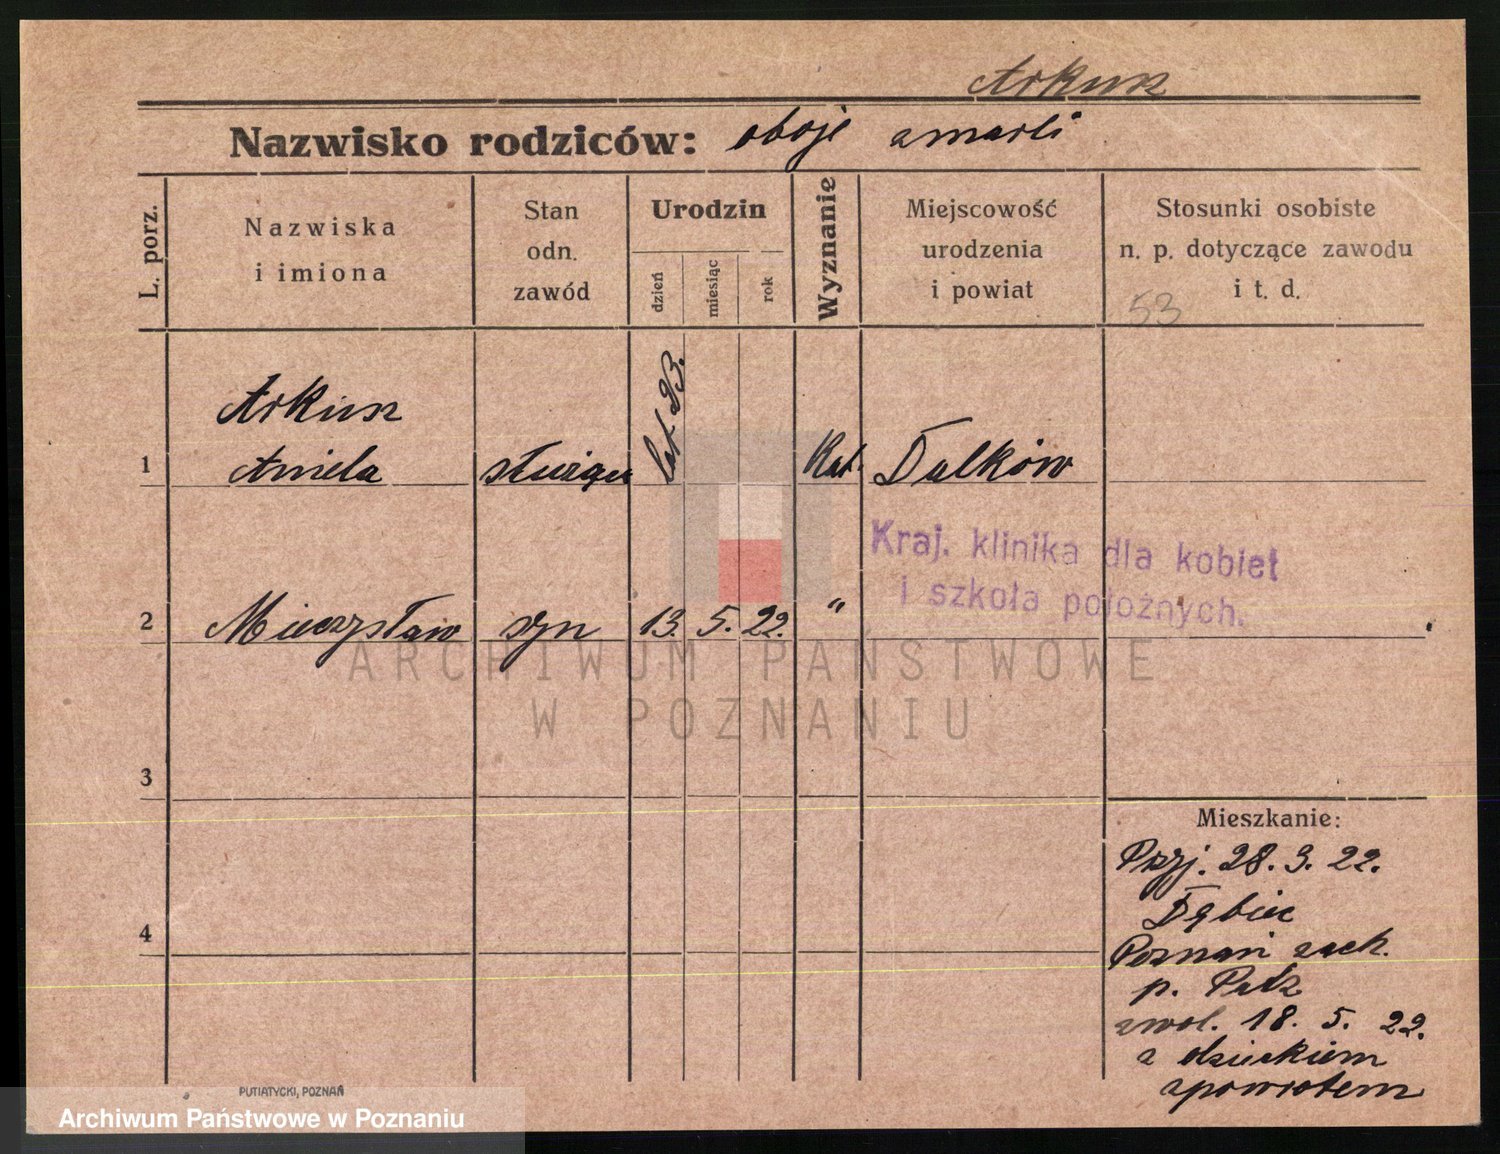 Arkusz
Nazwisko rodziców: oboje zmarli
L. porz.
Nazwiska
i imiona
Stan
odn.
zawód
Urodzin
dzień
miesiąc
rok
Wyznanie
Miejscowość
urodzenia
i powiat
Stosunki osobiste
n. p. dotyczące zawodu
i t. d.
53
Arkusz
1 Aniela służąca lat 23. Kat. Dalków
Kraj. klinika dla kobiet
i szkoła położnych.
2 Mieczysław syn 13. 5. 22. "
3
Mieszkanie:
Przyj. 28. 3. 22.
Dębiec
4
Poznań zach.
p. Patz
zwol. 18. 5. 22.
z dzieckiem
zpowrotem
ARCHIWUM PAŃSTWOWE
W POZNANIU
PUTIATYCKI, POZNAŃ
Archiwum Państwowe w Poznaniu